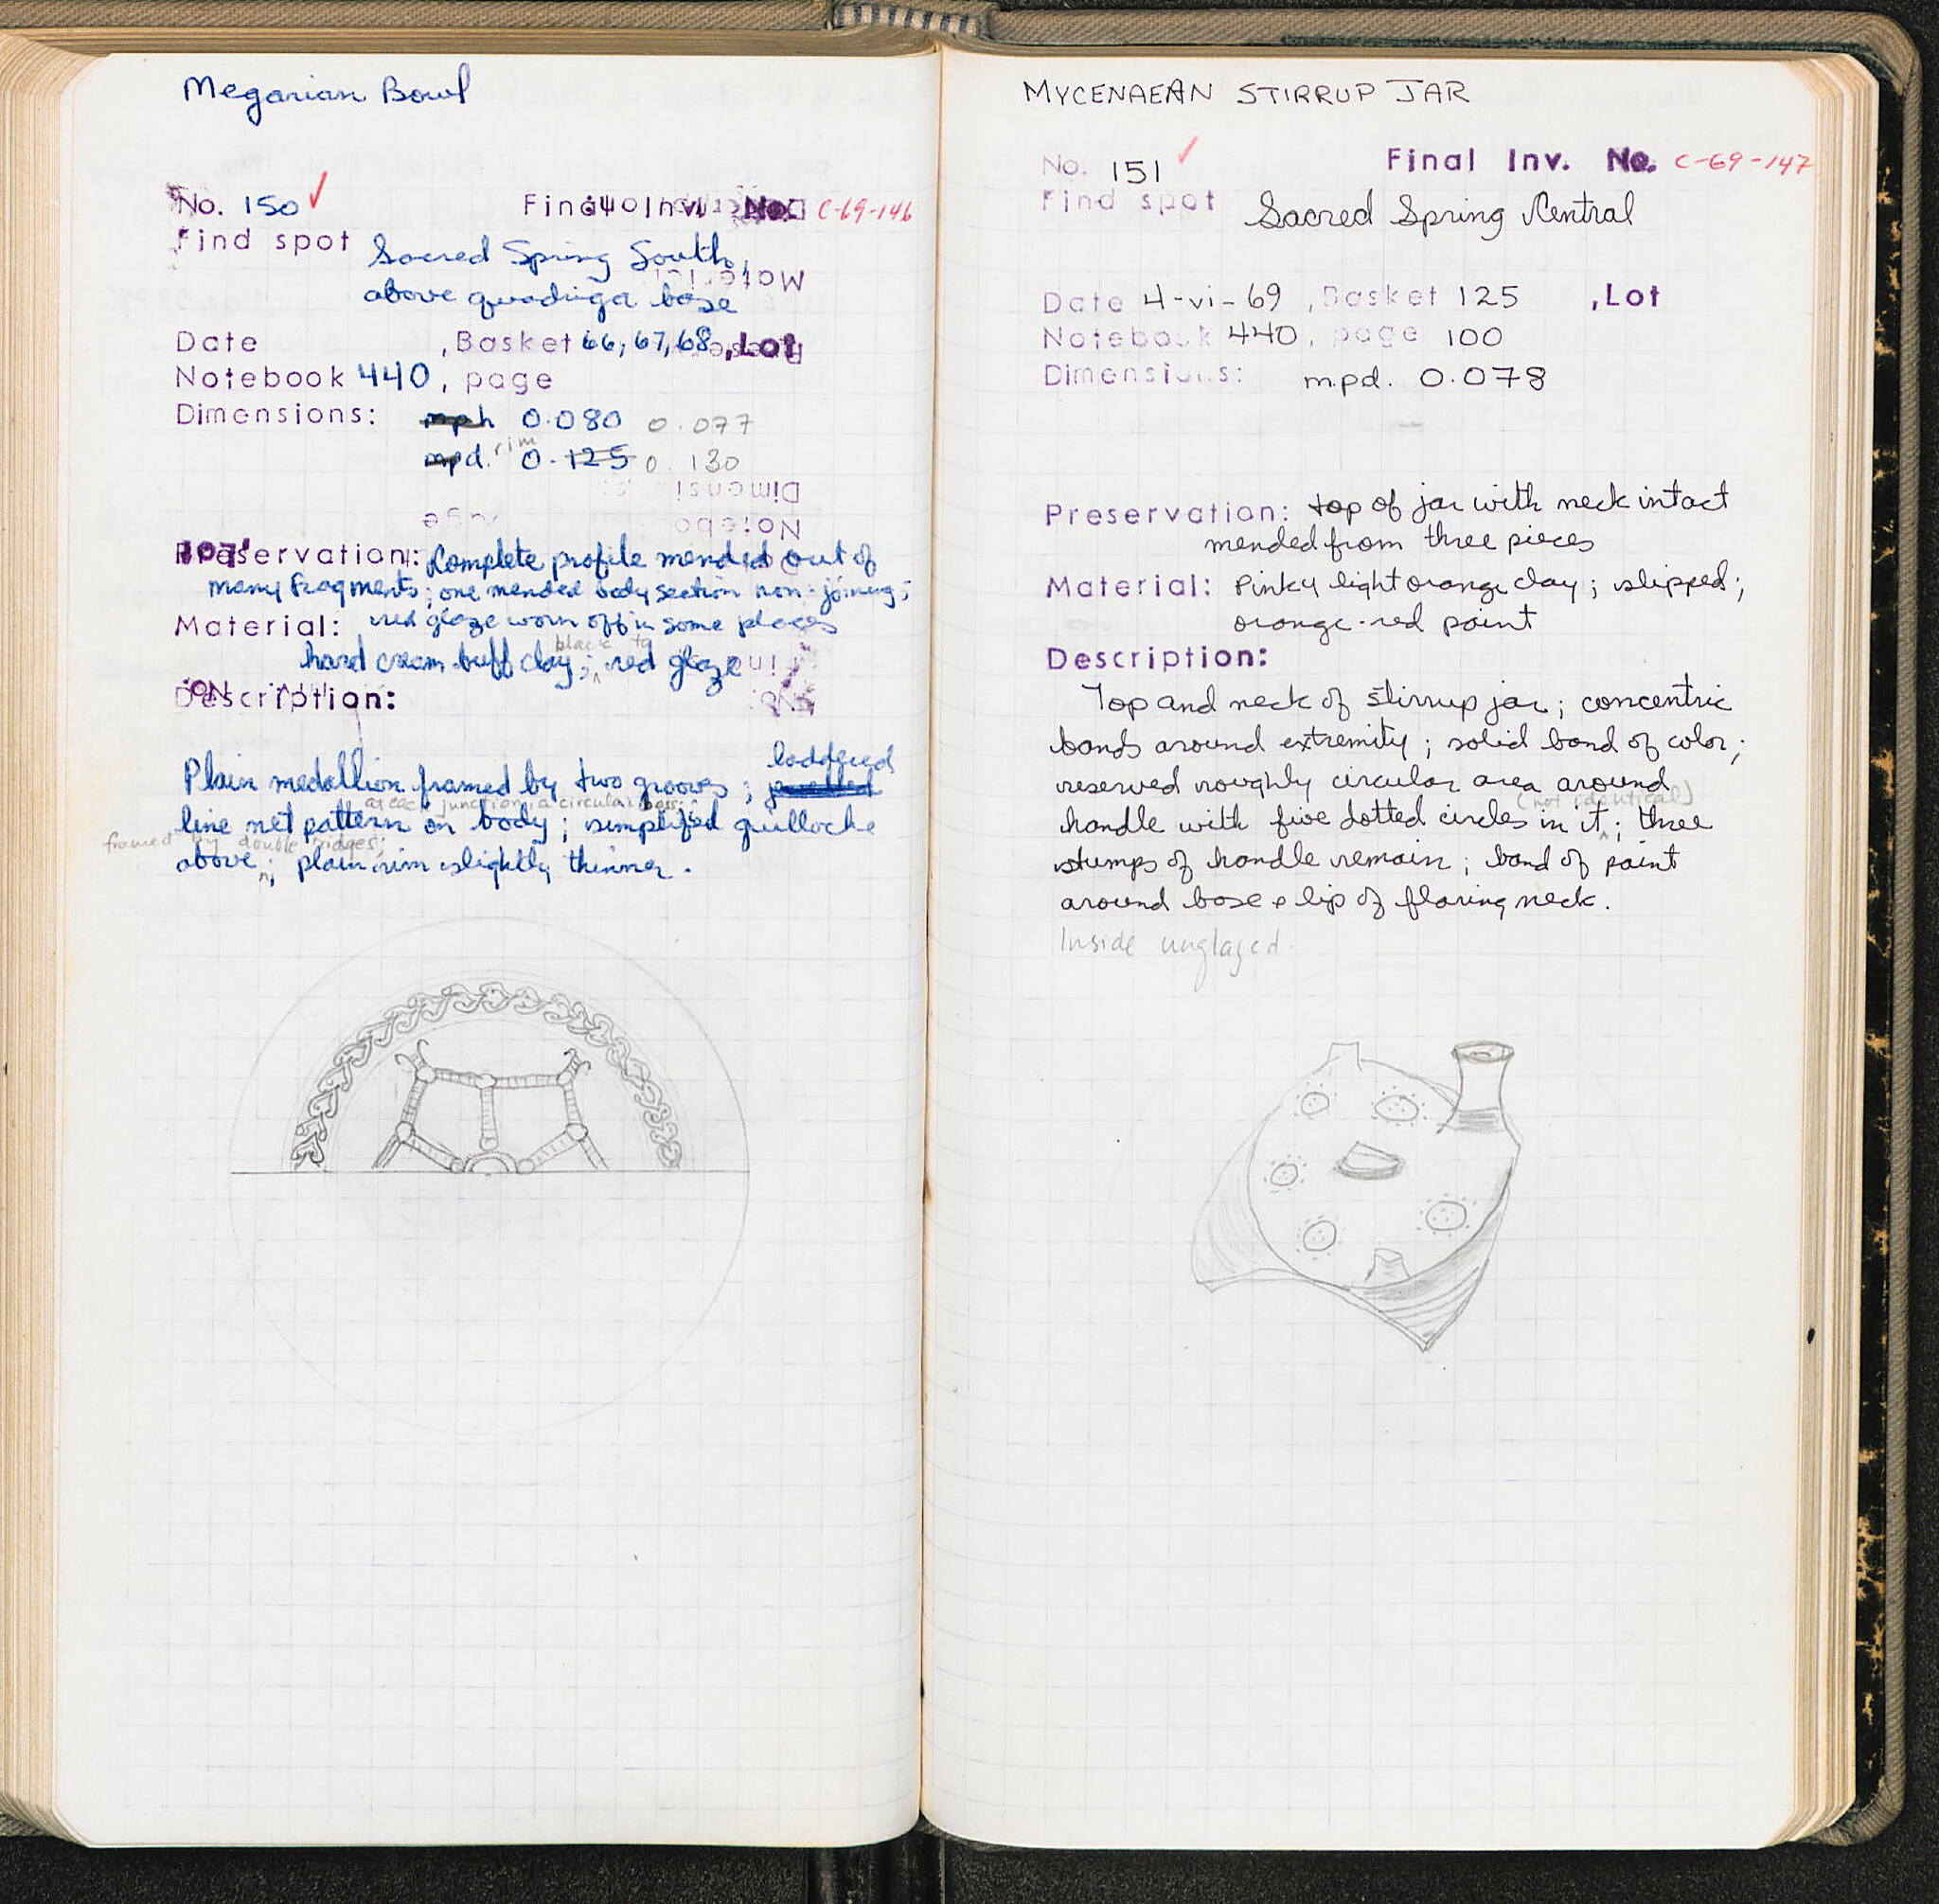 Megarian Bowl
No. 150 ✓ Final Inv. No. C-69-146
Find spot Sacred Spring South,
above quadriga base
Date , Basket 66, 67, 68 , Lot
Notebook 440, page
Dimensions: mph 0.080 0.077
mpd. rim 0.125 0.130
Preservation: Complete profile mended out of
many fragments; one mended body section non-joining;
red glaze worn off in some places
Material:
hard cream-buff clay; black to red glaze
Description:
Plain medallion framed by two grooves; jewelled laddered
line net pattern on body; at each junction, a circular boss; simplified guilloche
above, framed by double ridges; plain rim slightly thinner.
MYCENAEAN STIRRUP JAR
No. 151 ✓ Final Inv. No. C-69-147
Find spot Sacred Spring Central
Date 4-vi-69 , Basket 125 , Lot
Notebook 440, page 100
Dimensions: m.p.d. 0.078
Preservation: top of jar with neck intact
mended from three pieces
Material: Pinky light orange clay; slipped;
orange-red paint
Description:
Top and neck of stirrup jar; concentric
bands around extremity; solid band of color;
reserved roughly circular area around
handle with five dotted circles in it (not identical); three
stumps of handle remain; band of paint
around base & lip of flaring neck.
Inside unglazed.